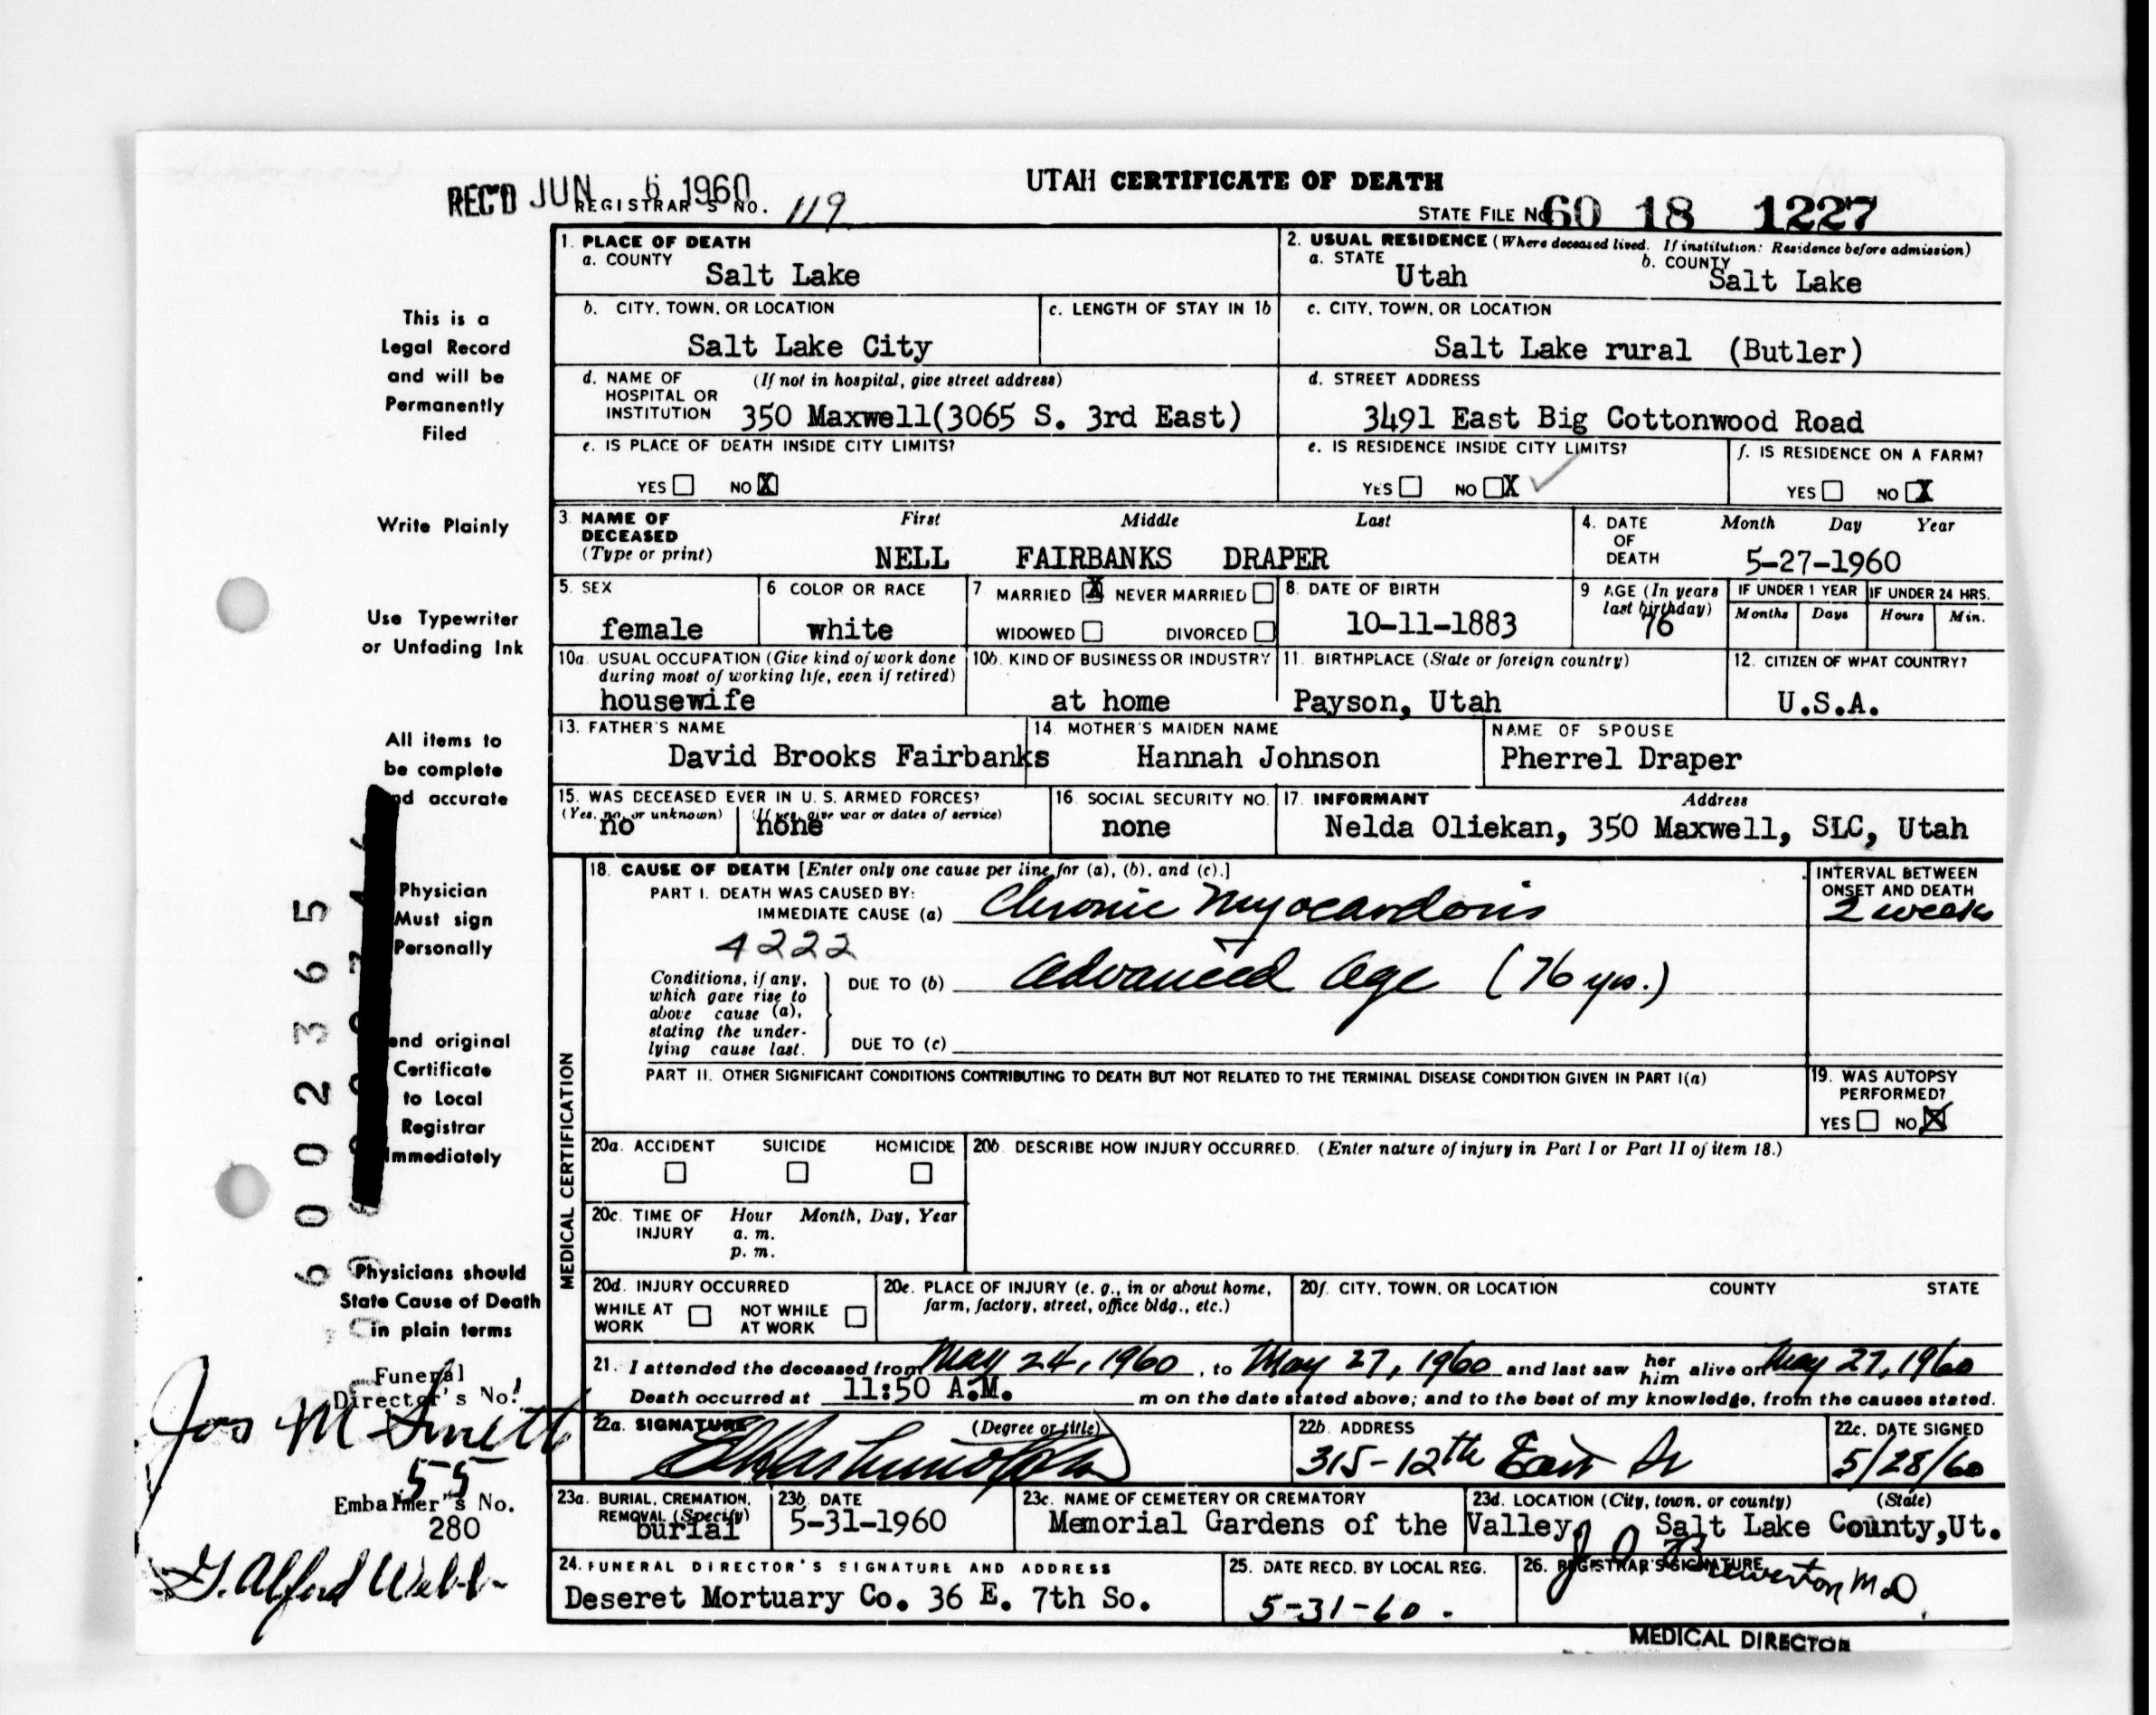 REC'D JUN 6 1960
UTAH CERTIFICATE OF DEATH
REGISTRAR'S NO. 119
STATE FILE No. 60 18 1227
1. PLACE OF DEATH
a. COUNTY
Salt Lake
2. USUAL RESIDENCE (Where deceased lived. If institution: Residence before admission)
a. STATE
Utah
b. COUNTY
Salt Lake
b. CITY, TOWN, OR LOCATION
Salt Lake City
c. LENGTH OF STAY IN 1b
c. CITY, TOWN, OR LOCATION
Salt Lake rural (Butler)
d. NAME OF HOSPITAL OR INSTITUTION (If not in hospital, give street address)
350 Maxwell(3065 S. 3rd East)
d. STREET ADDRESS
3491 East Big Cottonwood Road
e. IS PLACE OF DEATH INSIDE CITY LIMITS?
YES NO X
e. IS RESIDENCE INSIDE CITY LIMITS?
YES NO X
f. IS RESIDENCE ON A FARM?
YES NO X
3. NAME OF DECEASED (Type or print)
First Middle Last
NELL FAIRBANKS DRAPER
4. DATE OF DEATH
Month Day Year
5-27-1960
5. SEX
female
6. COLOR OR RACE
white
7. MARRIED X NEVER MARRIED
WIDOWED DIVORCED
8. DATE OF BIRTH
10-11-1883
9. AGE (In years last birthday)
76
IF UNDER 1 YEAR
Months Days
IF UNDER 24 HRS.
Hours Min.
10a. USUAL OCCUPATION (Give kind of work done during most of working life, even if retired)
housewife
10b. KIND OF BUSINESS OR INDUSTRY
at home
11. BIRTHPLACE (State or foreign country)
Payson, Utah
12. CITIZEN OF WHAT COUNTRY?
U.S.A.
13. FATHER'S NAME
David Brooks Fairbanks
14. MOTHER'S MAIDEN NAME
Hannah Johnson
NAME OF SPOUSE
Pherrel Draper
15. WAS DECEASED EVER IN U. S. ARMED FORCES?
(Yes, no, or unknown) (If yes, give war or dates of service)
no none
16. SOCIAL SECURITY NO.
none
17. INFORMANT Address
Nelda Oliekan, 350 Maxwell, SLC, Utah
MEDICAL CERTIFICATION
18. CAUSE OF DEATH [Enter only one cause per line for (a), (b), and (c).]
PART I. DEATH WAS CAUSED BY:
IMMEDIATE CAUSE (a) Chronic Myocardosis
INTERVAL BETWEEN ONSET AND DEATH
2 weeks
4222
Conditions, if any, which gave rise to above cause (a), stating the underlying cause last.
DUE TO (b) Advanced Age (76 yrs.)
DUE TO (c)
PART II. OTHER SIGNIFICANT CONDITIONS CONTRIBUTING TO DEATH BUT NOT RELATED TO THE TERMINAL DISEASE CONDITION GIVEN IN PART I(a)
19. WAS AUTOPSY PERFORMED?
YES NO X
20a. ACCIDENT SUICIDE HOMICIDE
20b. DESCRIBE HOW INJURY OCCURRED. (Enter nature of injury in Part I or Part II of item 18.)
20c. TIME OF INJURY
Hour Month, Day, Year
a. m.
p. m.
20d. INJURY OCCURRED
WHILE AT WORK NOT WHILE AT WORK
20e. PLACE OF INJURY (e. g., in or about home, farm, factory, street, office bldg., etc.)
20f. CITY, TOWN, OR LOCATION COUNTY STATE
21. I attended the deceased from May 24, 1960, to May 27, 1960 and last saw her him alive on May 27, 1960
Death occurred at 11:50 A.M. m on the date stated above; and to the best of my knowledge, from the causes stated.
22a. SIGNATURE (Degree or title)
22b. ADDRESS
315-12th East
22c. DATE SIGNED
5/28/60
23a. BURIAL, CREMATION, REMOVAL (Specify)
burial
23b. DATE
5-31-1960
23c. NAME OF CEMETERY OR CREMATORY
Memorial Gardens of the Valley,
23d. LOCATION (City, town, or county) (State)
Salt Lake County, Ut.
24. FUNERAL DIRECTOR'S SIGNATURE AND ADDRESS
Deseret Mortuary Co. 36 E. 7th So.
25. DATE RECD. BY LOCAL REG.
5-31-60.
26. REGISTRAR'S SIGNATURE
M.D.
MEDICAL DIRECTOR
This is a
Legal Record
and will be
Permanently
Filed
Write Plainly
Use Typewriter
or Unfading Ink
All items to
be complete
and accurate
Physician
Must sign
Personally
Send original
Certificate
to Local
Registrar
Immediately
Physicians should
State Cause of Death
in plain terms
Funeral
Director's No.
Jos M Smith
55
Embalmer's No.
280
G. Alford Webb
6002365